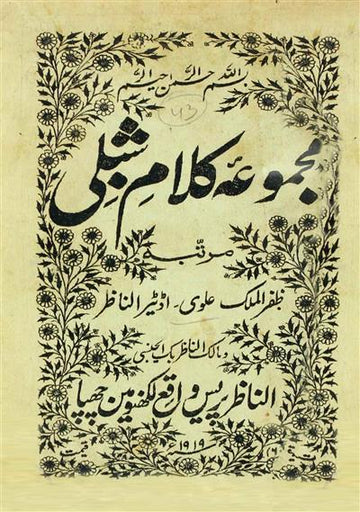 بسم اللہ الرحمن الرحیم
مجموعۂ کلامِ شبلی
مرتبہ
ظفر الملک علوی۔ اڈیٹر الناظر
و مالک الناظر بک ایجنسی
الناظر پریس واقع لکھنؤ مین چھپا
۱۹۱۹
قیمت